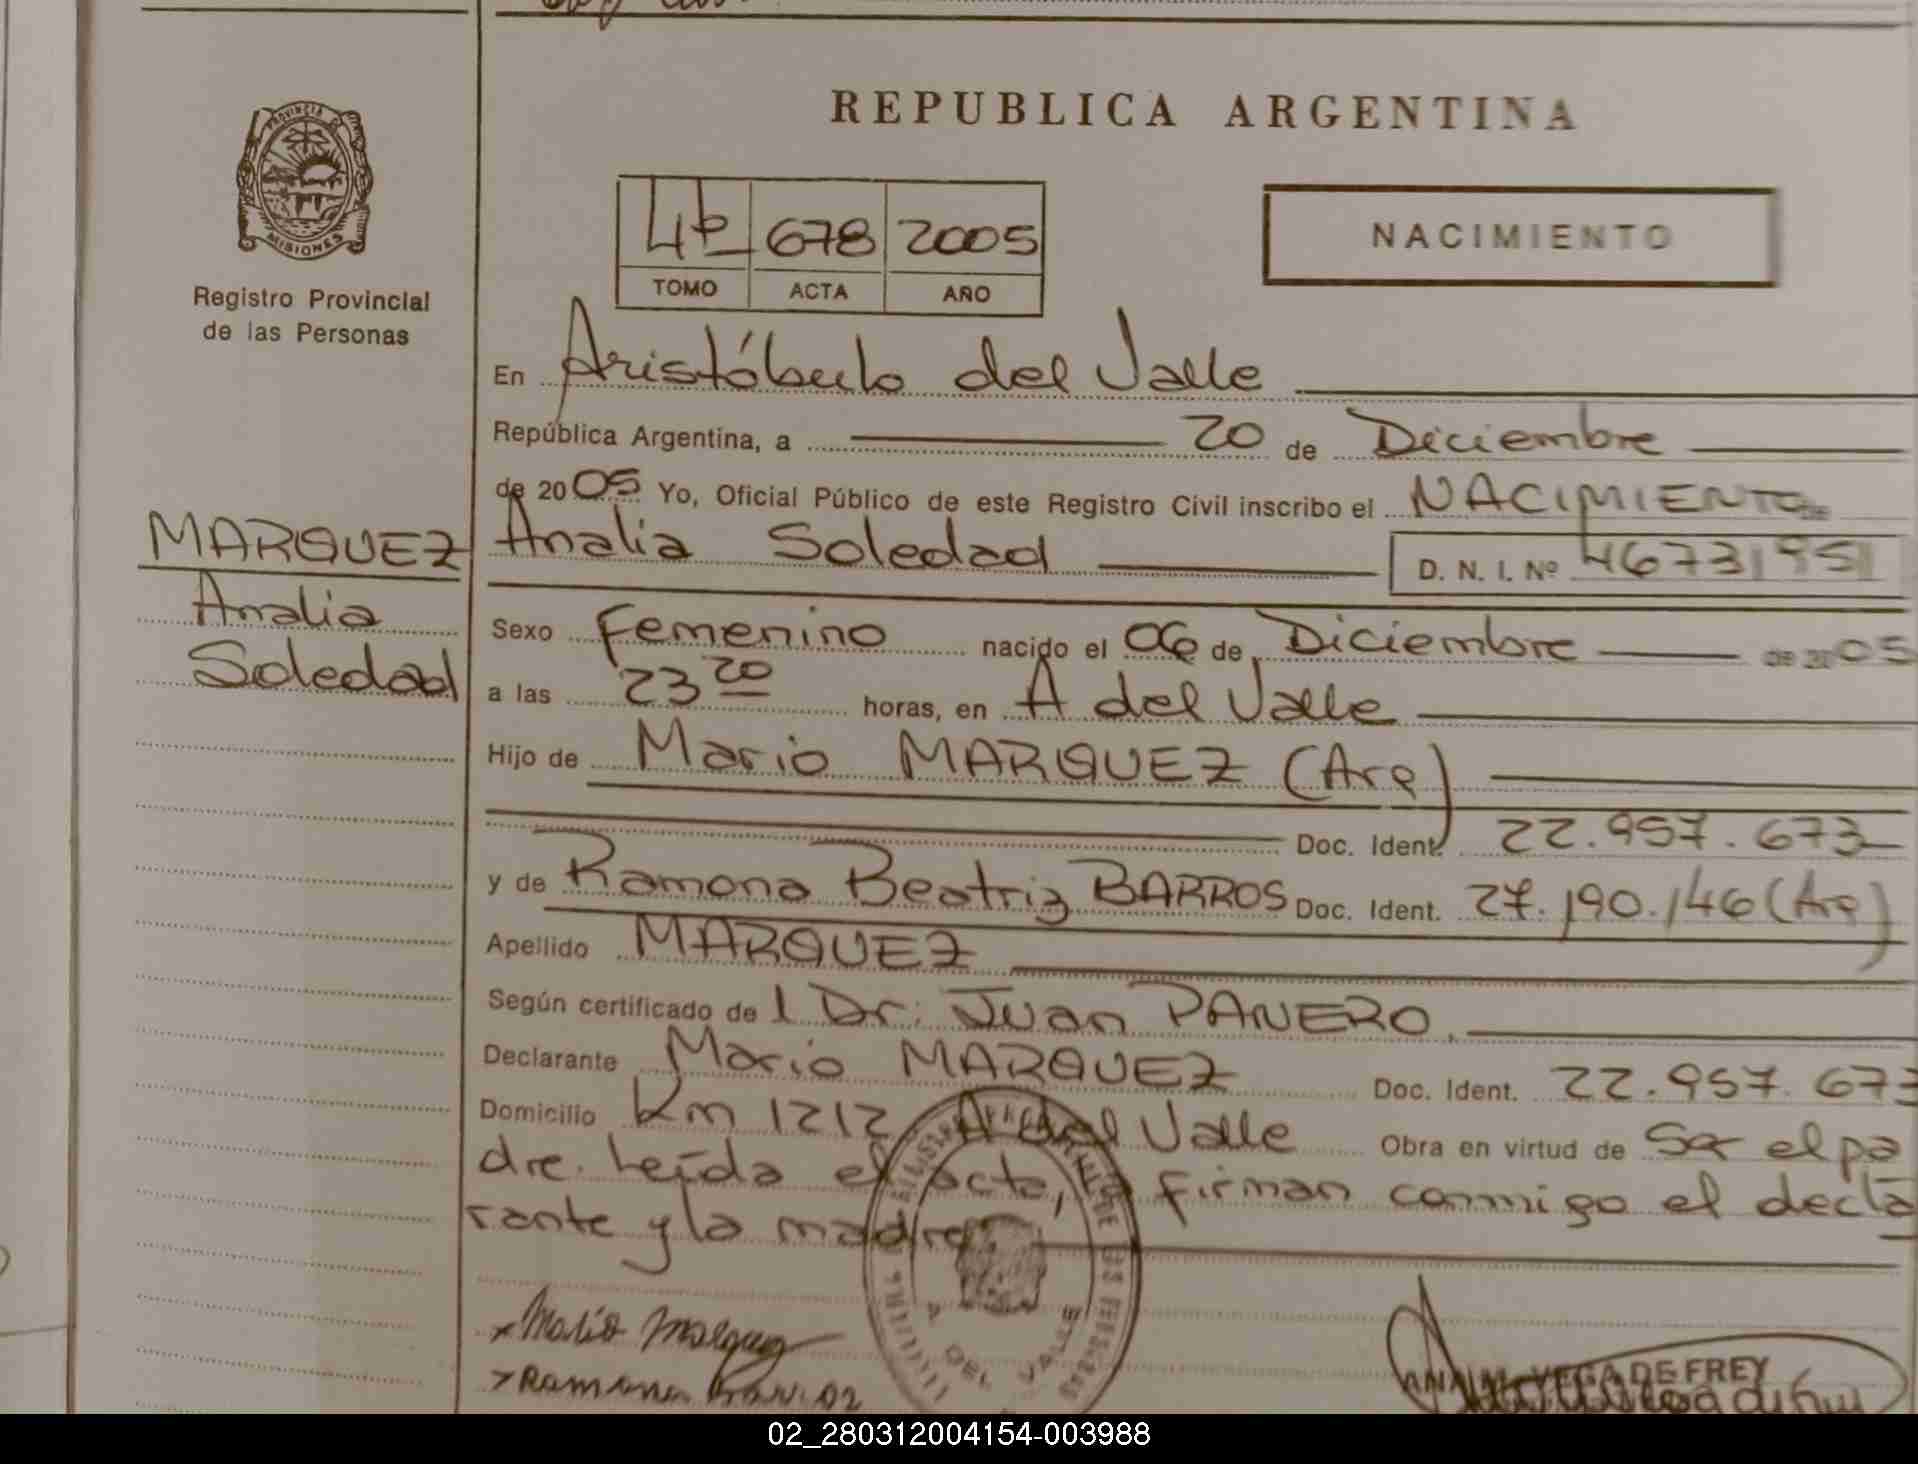 REPUBLICA ARGENTINA
PROVINCIA DE
MISIONES
Registro Provincial
de las Personas
4b 678 2005
TOMO ACTA AÑO
NACIMIENTO
En Aristóbulo del Valle
República Argentina, a 20 de Diciembre
de 2005 Yo, Oficial Público de este Registro Civil inscribo el NACIMIENTO de
MARQUEZ
Analia
Soledad
Analia Soledad D. N. I. Nº 46731951
Sexo Femenino nacido el 06 de Diciembre de 2005
a las 23 20 horas, en A del Valle
Hijo de Mario MARQUEZ (Arg)
Doc. Ident. 22.957.673
y de Ramona Beatriz BARROS Doc. Ident. 27.190.146 (Arg)
Apellido MARQUEZ
Según certificado de l Dr. Juan PANERO.
Declarante Mario MARQUEZ Doc. Ident. 22.957.673
Domicilio Km 1212 A del Valle Obra en virtud de Ser el pa
dre. Leída el acta, firman conmigo el decla
rante y la madre
A DEL VALLE
Mario Marquez
Ramona
VEGA DE FREY
02_280312004154-003988